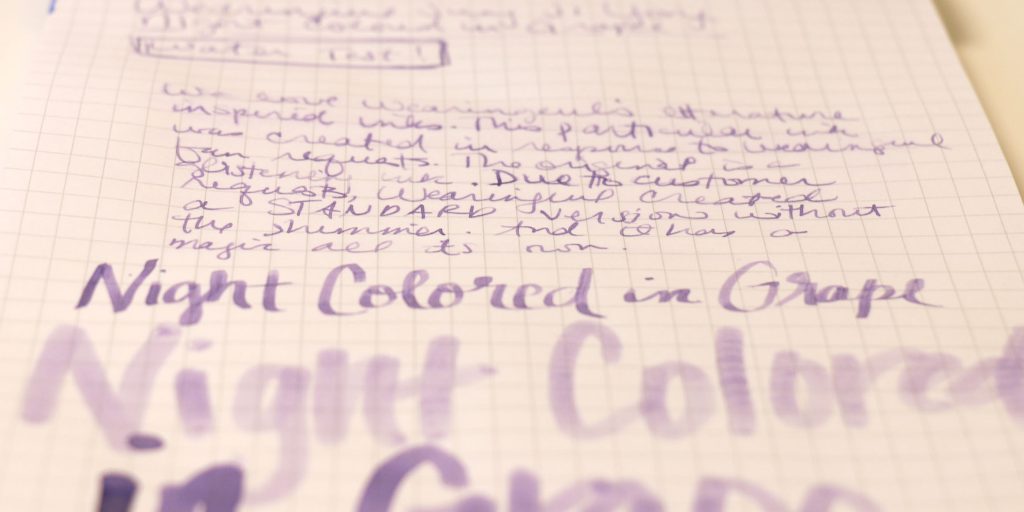 Night Colored in Grape
Water Test!
We love Wearingeul's literature
inspired inks. This particular ink
was created in response to Wearingeul
fan requests. The original is a
glistening ink. Due to customer
requests, Wearingeul created
a STANDARD version without
the shimmer. And it has a
magic all its own.
Night Colored in Grape
Night Colored
in Grape